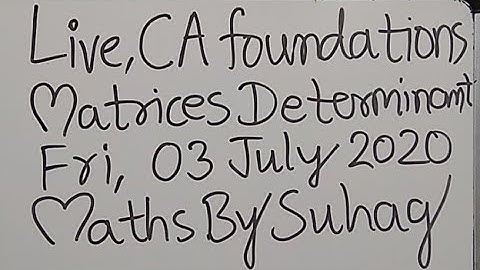 Live, CA foundations
Matrices Determinant
Fri, 03 July 2020
Maths By Suhag